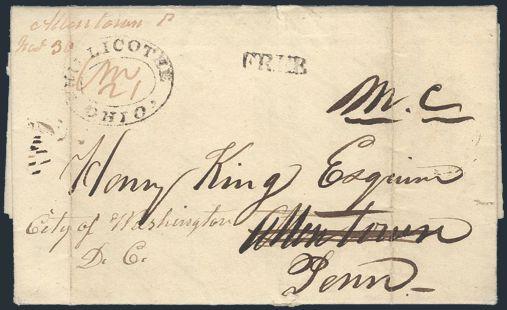 Allentown P
Nov 30
CHILLICOTHE
OHIO.
21
FREE
M. C
Henry King Esquire
City of Washington
Allentown
D. C.
Penn.